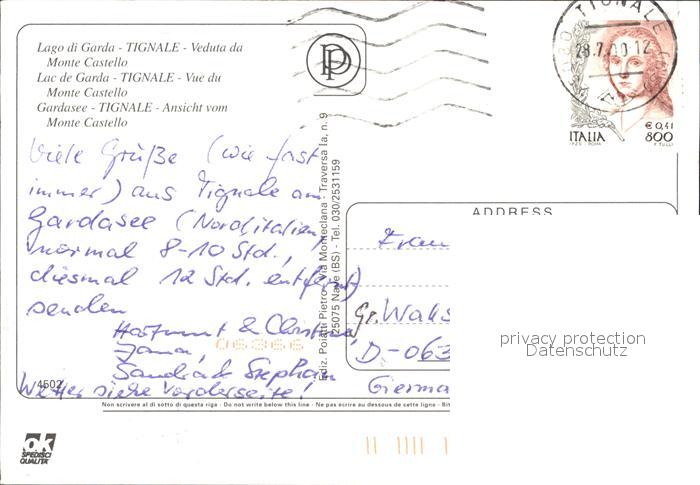 Lago di Garda - TIGNALE - Veduta da
Monte Castello
Lac de Garda - TIGNALE - Vue du
Monte Castello
Gardasee - TIGNALE - Ansicht vom
Monte Castello
PP
TIGNALE
28.7.00.12
€ 0,41
ITALIA 800
I.P.Z.S. - ROMA F. TULLI
Viele Grüße (wie fast
immer) aus Tignale am
Gardasee (Norditalien,
normal 8-10 Std.,
diesmal 12 Std. entfernt)
senden
Hartmut & Christina,
Jana,
Sandra & Stephan
Wetter siehe Vorderseite!
06366
4502
Ediz. Poiatti Pietro - Via Monteclana - Traversa Ia, n. 9
25075 Nave (BS) - Tel. 030/2531159
ADDRESS
Frau
Gr. Wals
D-063
Germa
privacy protection
Datenschutz
Non scrivere al di sotto di questa riga - Do not write below this line - Ne pas écrire au dessous de cette ligne - Bit
ok
SPEDISCI
QUALITÀ